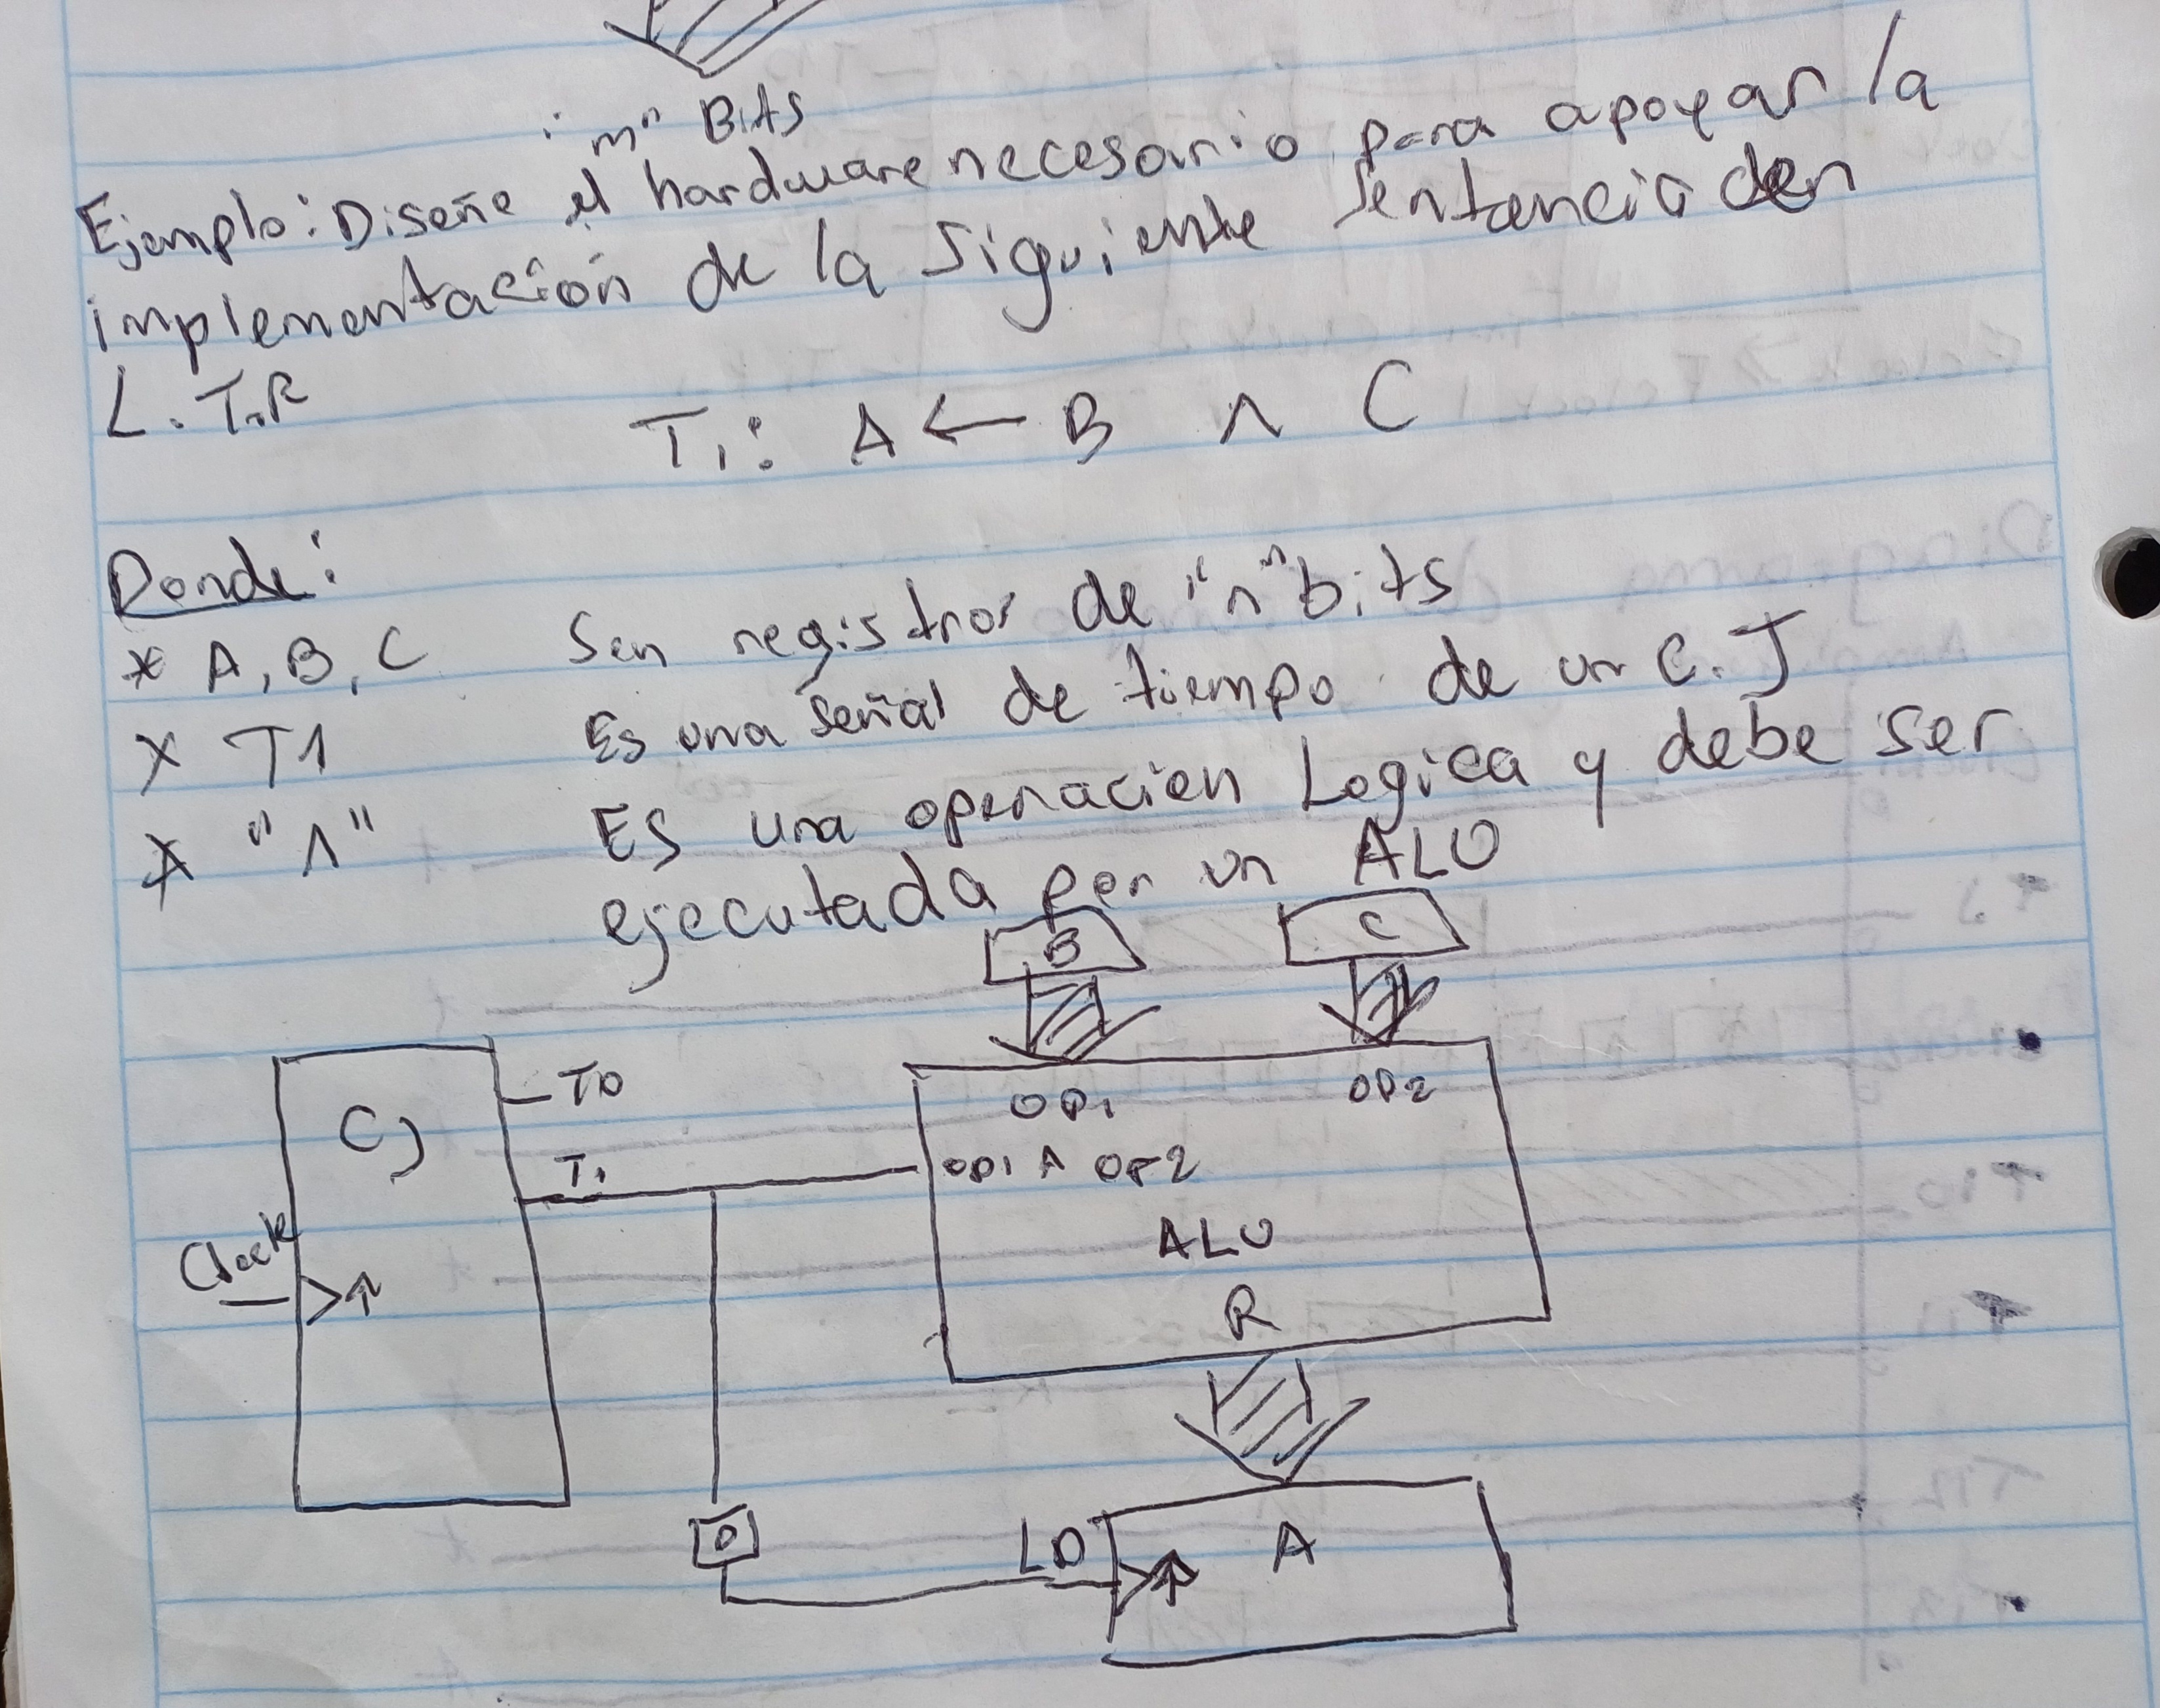 "m" Bits
Ejemplo: Diseñe el hardware necesario para apoyar la
implementación de la siguiente sentencia den
L.T.R
T1: A ← B ∧ C
Donde:
* A, B, C Son registror de "n" bits
* T1 Es una señal de tiempo de un C.J
* "∧" Es una operación Logica y debe ser
ejecutada por un ALU
B C
CJ T0 OP1 OP2
T1 OP1 ∧ OP2
ALU
Clock
R
D LD A